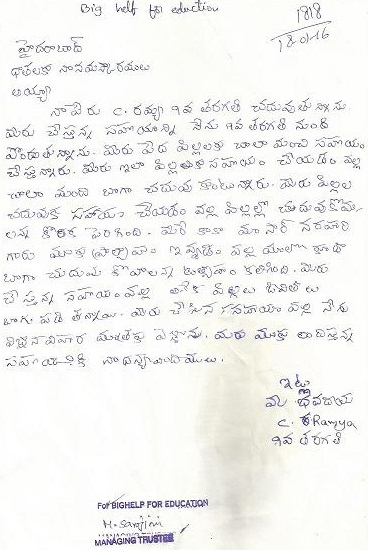 Big help for eduction
1818
18-01-16
హైదరాబాద్
దాతలకు నా నమస్కారములు
అయ్యా
నా పేరు C. రమ్యా 9వ తరగతి చదువుతున్నాను.
మీరు చేస్తున్న సహాయాన్ని నేను 9వ తరగతి నుండి
పొందుతున్నాను. మీరు పేద పిల్లలకు చాలా మంచి సహాయం
చేస్తున్నారు. మీరు ఇలా పిల్లలకు సహాయం చేయడం వల్ల
చాలా మంది బాగా చదువు కుంటున్నారు. మీరు పిల్లల
చదువుకు సహాయం చేయడం వల్ల పిల్లల్లో చదువుకోవా
లన్న కోరిక పెరిగింది. మా సార్ నరహరి
గారు మాకు ఇవ్వడం వల్ల
బాగా చదువు కోవాలన్న కలిగింది. మీరు
చేస్తున్న సహాయంవల్ల అనేక పిల్లలు
మీరు చేసిన సహాయం వల్ల నేను
మీరు మాకు అందిస్తున్న
సహాయానికి నా ధన్యవాదములు.
ఇట్లు
మీ
C. Ramya
9వ తరగతి
For BIGHELP FOR EDUCATION
H. Sarojini
MANAGING TRUSTEE